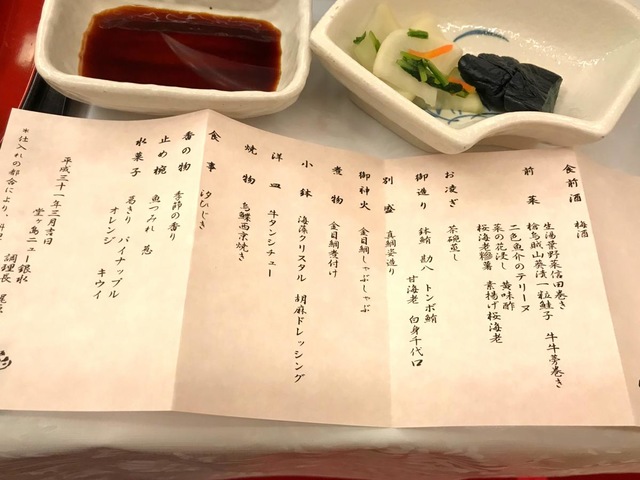 食前酒　梅酒
前菜　生湯葉野菜信田巻き　牛牛蒡巻き
桧烏賊山葵漬一粒鮭子
二色魚介のテリーヌ
菜の花浸し　黄味酢
桜海老糝薯　素揚げ桜海老
お凌ぎ　茶碗蒸し
御造り　鉢鮪　勘八　トンボ鮪
甘海老　白身千代口
別盛　真鯛姿造り
御神火　金目鯛しゃぶしゃぶ
煮物　金目鯛煮付け
小鉢　海藻クリスタル　胡麻ドレッシング
洋皿　牛タンシチュー
焼物　烏鰈西京焼き
食事　汐ひじき
香の物　季節の香り
止め椀　魚つみれ　葱
水菓子　葛きり　パイナップル
オレンジ　キウイ
平成三十一年三月吉日
堂ヶ島ニュー銀水
調理長
※仕入れの都合により、